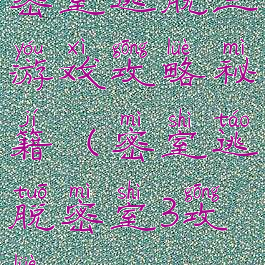 密室逃脱
yóu xì gōng lüè mì
游戏攻略秘
jí mì shì táo
籍(密室逃
tuō mì shì gōng
脱密室3攻
lüè